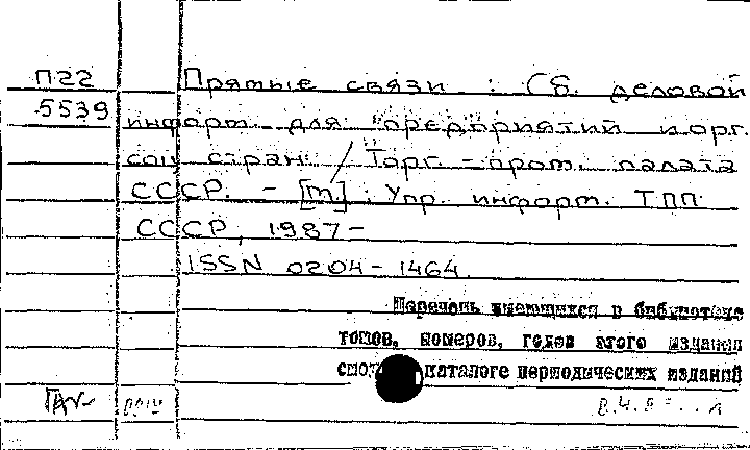 П22 Прямые связи : Сб. деловой
5539 информ. для предприятий и орг.
соц. стран / Торг.-пром. палата
СССР. - [М.] : Упр. информ. ТПП
СССР, 1987-
ISSN 0204-1464.
Перечень имеющихся в библиотеке
томов, номеров, годов этого издания
каталоге периодических изданий